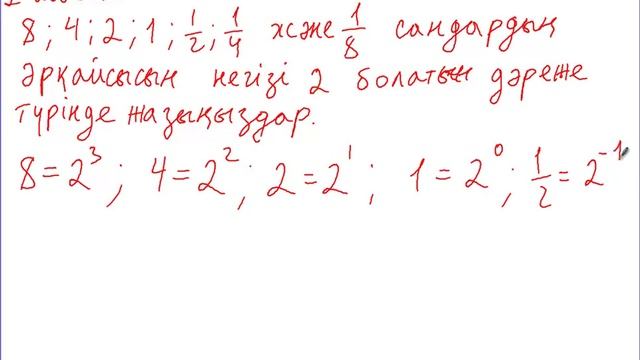 8; 4; 2; 1; 1/2; 1/4 және 1/8 сандардың
әрқайсысын негізі 2 болатын дәреже
түрінде жазыңыздар.
8 = 2³; 4 = 2²; 2 = 2¹; 1 = 2⁰; 1/2 = 2⁻¹